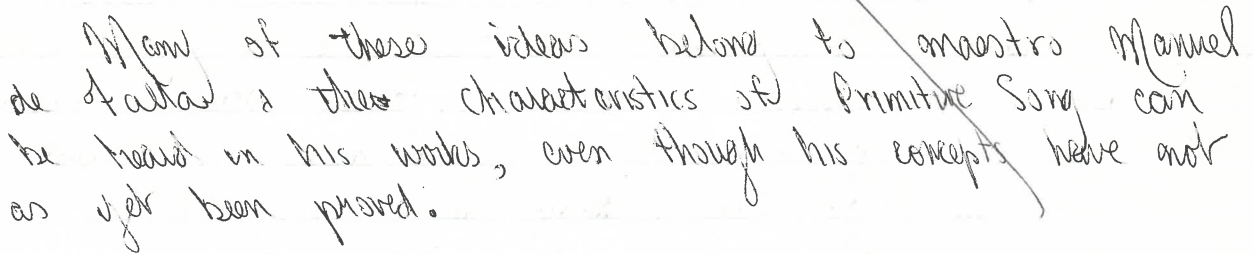 Many of these ideas belong to maestro Manuel
de Falla & the characteristics of Primitive Song can
be heard in his works, even though his concepts have not
as yet been proved.